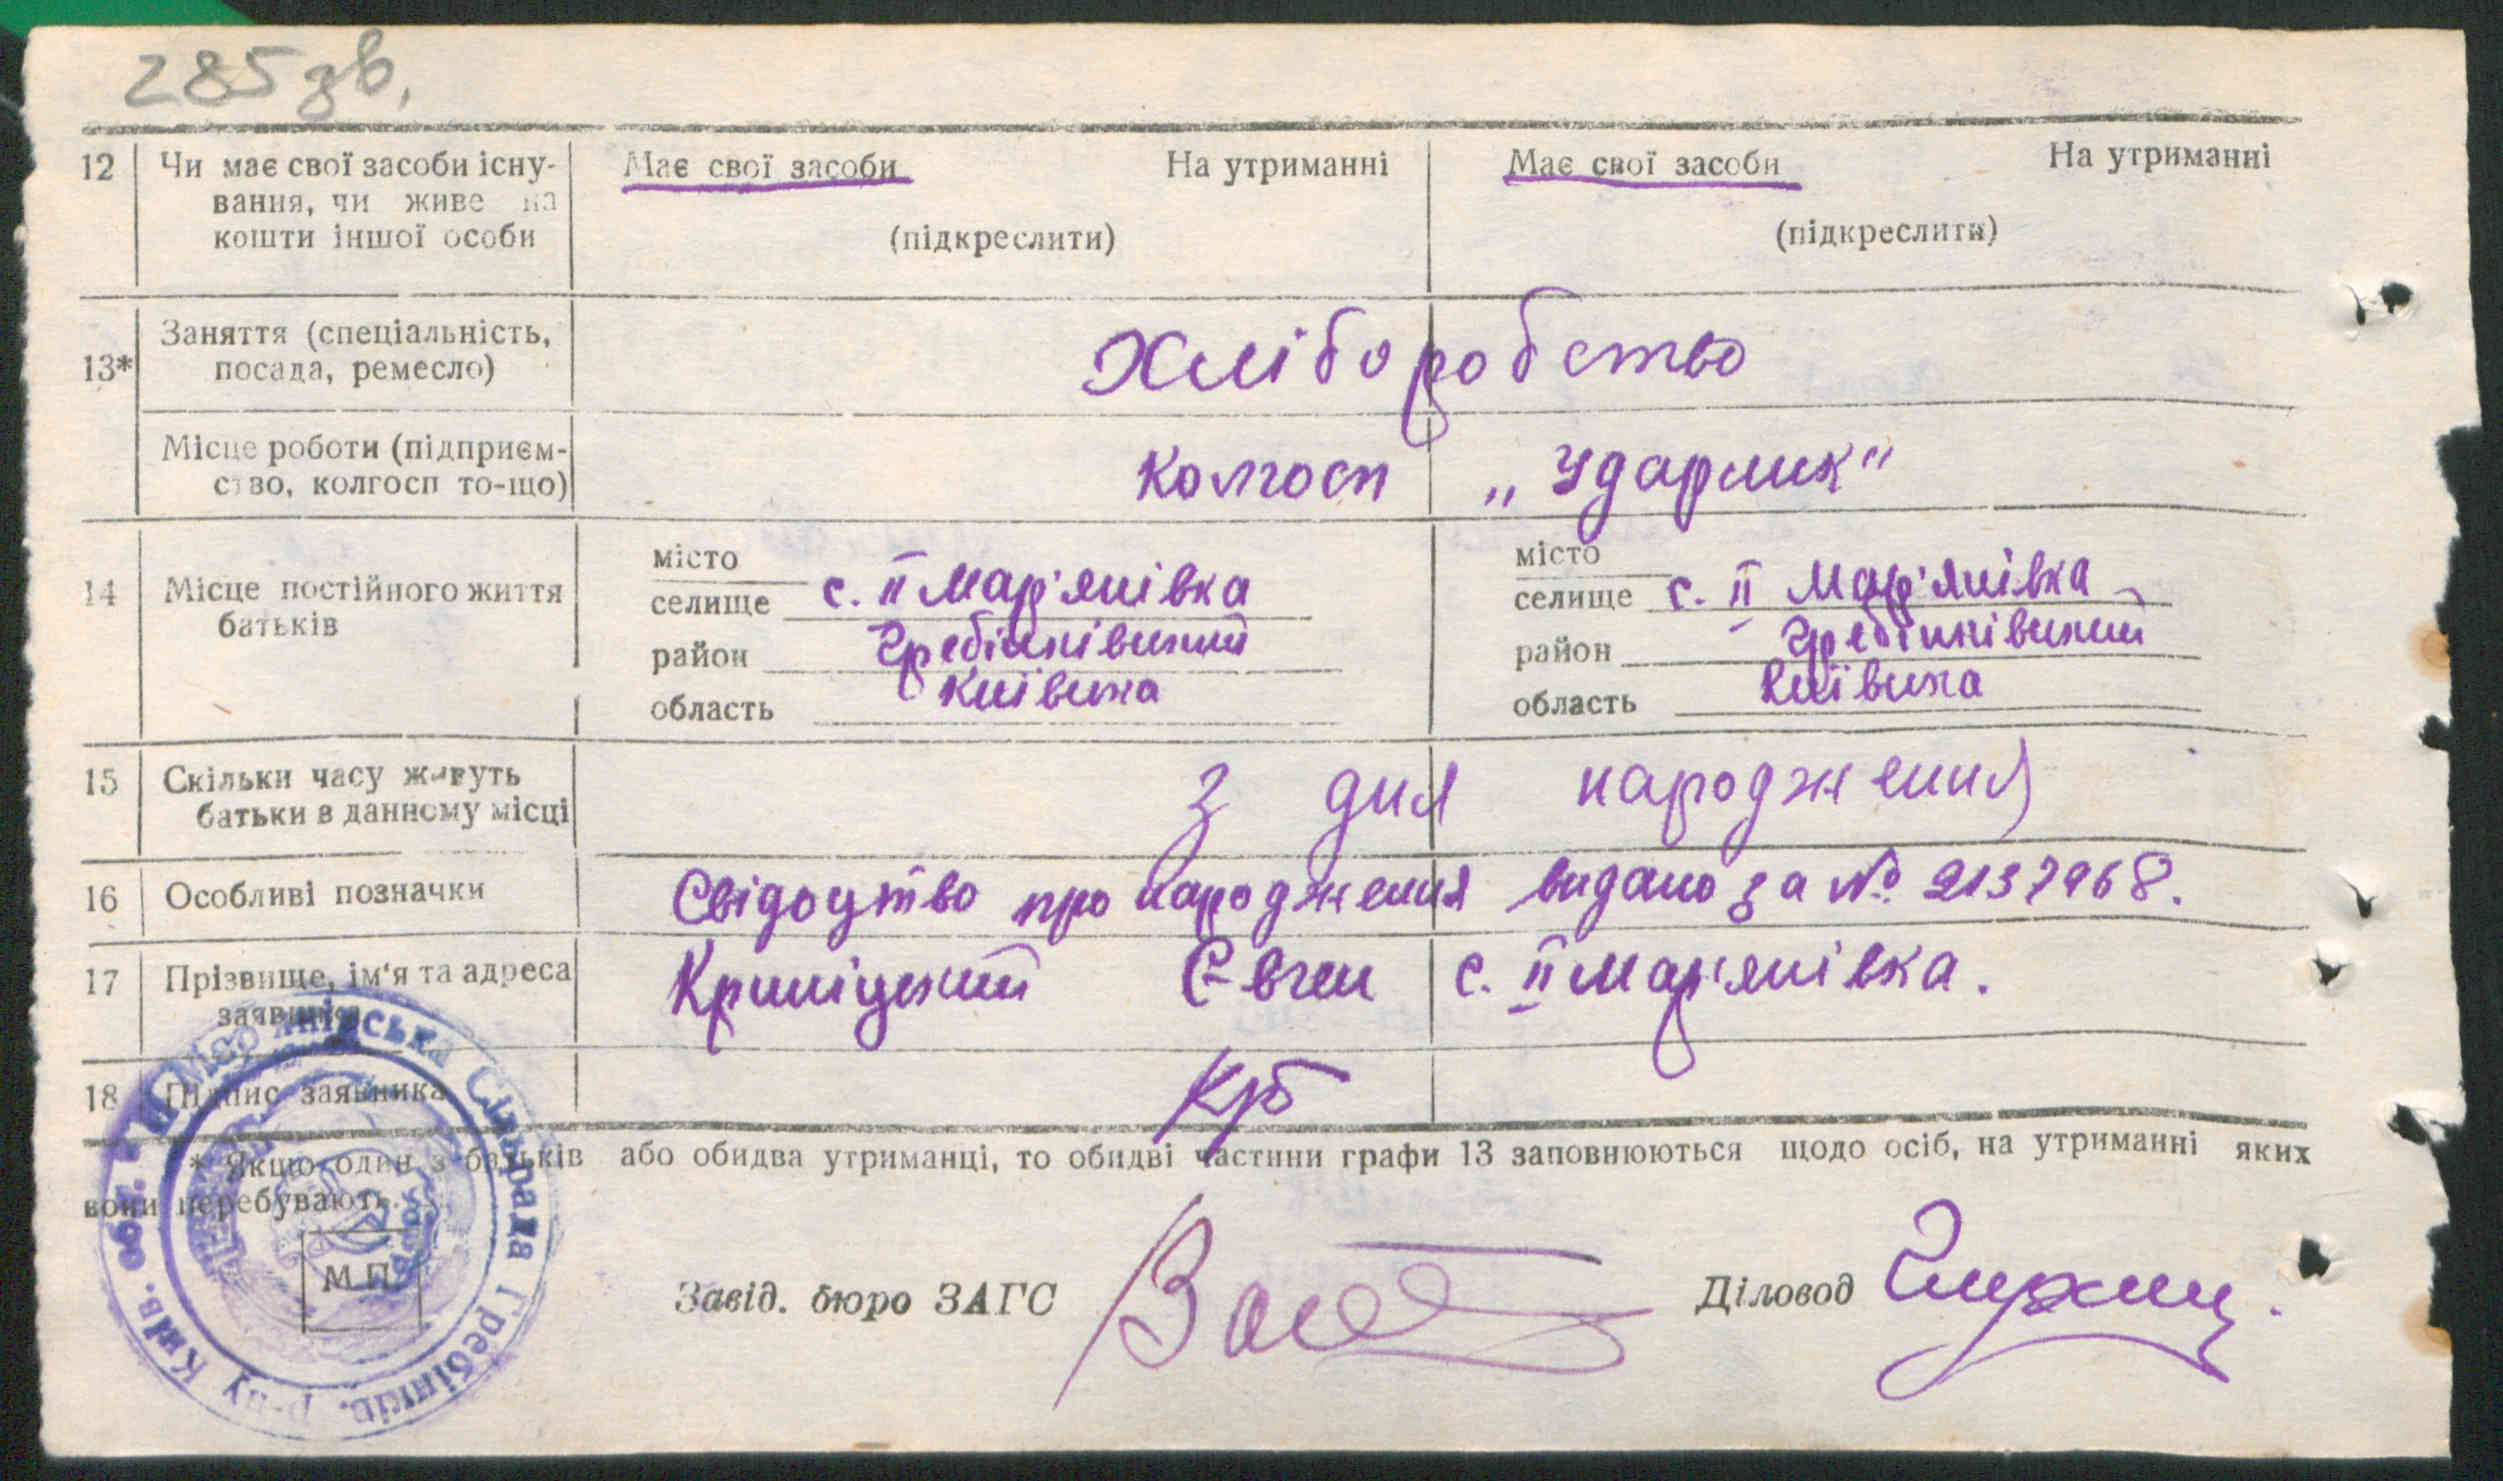 285 зв.
12 Чи має свої засоби існу- Має свої засоби На утриманні Має свої засоби На утриманні
вання, чи живе на
кошти іншої особи (підкреслити) (підкреслити)
Заняття (спеціальність, Хліборобство
13* посада, ремесло)
Місце роботи (підприєм- Колгосп „Ударник"
ство, колгосп то-що)
місто місто
14 Місце постійного життя селище с. ІІ Мар'янівка селище с. ІІ Мар'янівка
батьків район Гребінківський район Гребінківський
область Київська область Київська
15 Скільки часу живуть З дня народження
батьки в данному місці
16 Особливі позначки Свідоцтво про народження видано за № 2137968.
17 Прізвище, ім'я та адреса Криніцький Євген с. ІІ Мар'янівка.
заявника
18 Підпис заявника Кр
* Якщо один з батьків або обидва утриманці, то обидві частини графи 13 заповнюються щодо осіб, на утриманні яких
вони перебувають.
М.П.
Завід. бюро ЗАГС Діловод
ІІ Мар'янівська Сільрада Гребінків. р-ну Київ. обл.